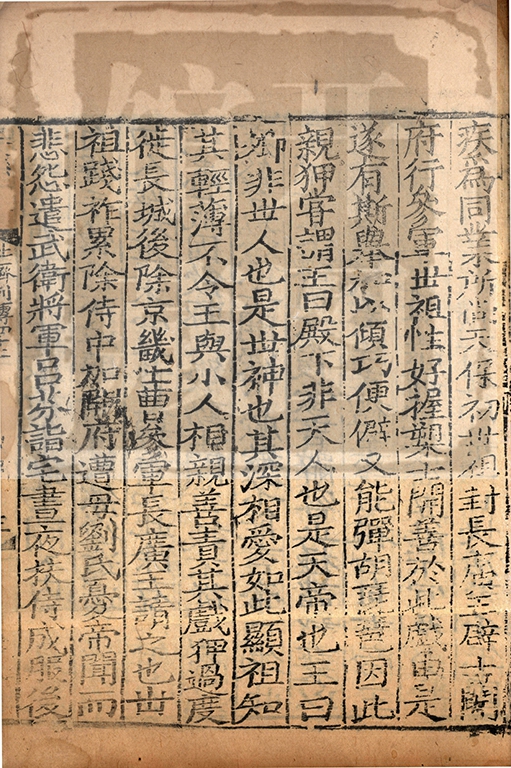 疾為同業所尚天保初世祖封長廣王辟士開
府行參軍世祖性好握槊士開善於此戲由是
遂有斯舉加以傾巧便僻又能彈胡琵琶因此
親狎嘗謂王曰殿下非天人也是天帝也王曰
卿非世人也是世神也其深相愛如此顯祖知
其輕薄不令王與小人相親善責其戲狎過度
徙長城後除京畿士曹參軍長廣王請之也世
祖踐祚累除侍中加開府遭母劉氏憂帝聞而
悲怨遣武衛將軍呂芬詣宅晝夜扶侍成服後